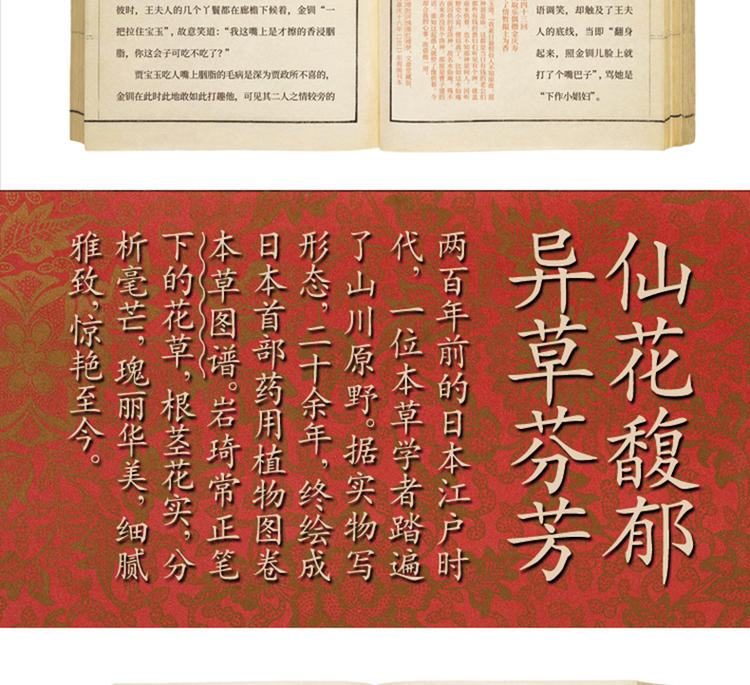 彼时，王夫人的几个丫鬟都在廊檐下候着，金钏“一
把拉住宝玉”，故意笑道：“我这嘴上是才擦的香浸胭
脂，你这会子可吃不吃了？”
贾宝玉吃人嘴上胭脂的毛病是深为贾政所不喜的，
金钏在此时此地敢如此打趣他，可见其二人之情较旁的
语调笑，却触及了王夫
人的底线，当即“翻身
起来，照金钏儿脸上就
打了个嘴巴子”，骂她是
“下作小娼妇”。
仙花馥郁
异草芬芳
两百年前的日本江户时
代，一位本草学者踏遍
了山川原野。据实物写
形态，二十余年，终绘成
日本首部药用植物图卷
本草图谱。岩琦常正笔
下的花草，根茎花实，分
析毫芒，瑰丽华美，细腻
雅致，惊艳至今。